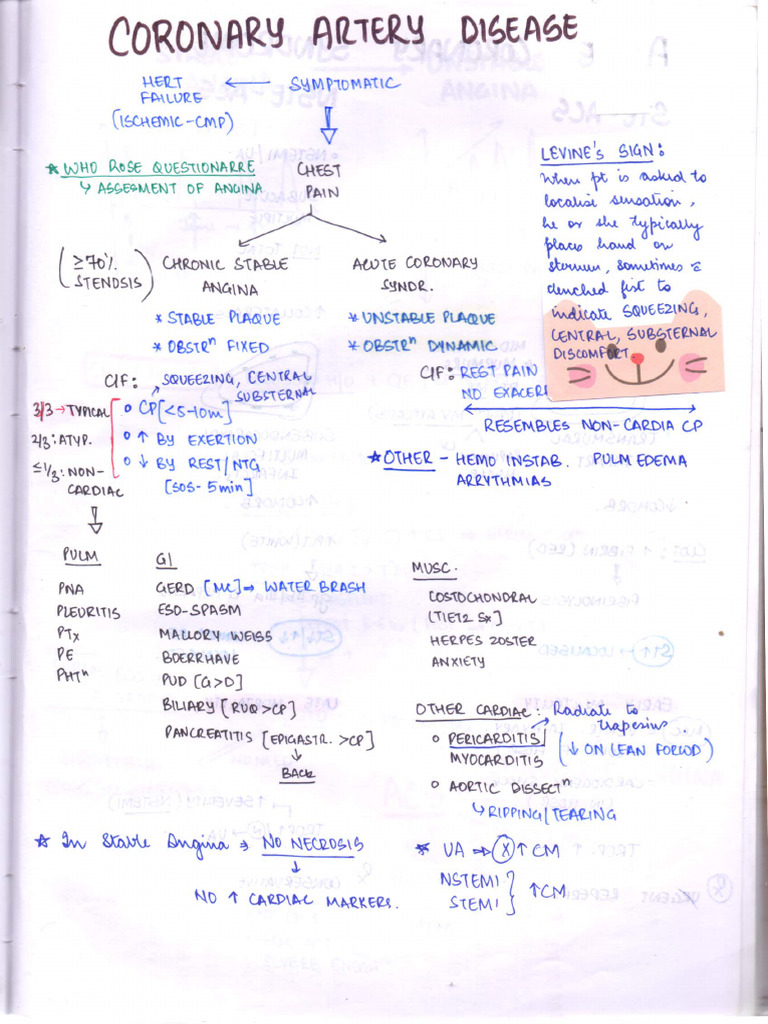 CORONARY ARTERY DISEASE
HERT FAILURE ← SYMPTOMATIC
(ISCHEMIC-CMP)
* WHO ROSE QUESTIONARRE
↳ ASSESMENT OF ANGINA
CHEST
PAIN
LEVINE'S SIGN:
When pt is asked to
localise sensation,
he or she typically
places hand on
sternum, sometimes c̄
clenched fist to
indicate SQUEEZING,
CENTRAL, SUBSTERNAL
DISCOMFORT.
(≥70%. STENOSIS)
CHRONIC STABLE
ANGINA
* STABLE PLAQUE
* OBSTRⁿ FIXED
ACUTE CORONARY
SYNDR.
* UNSTABLE PLAQUE
* OBSTRⁿ DYNAMIC
C/F: SQUEEZING, CENTRAL
SUBSTERNAL
3/3 → TYPICAL
2/3: ATYP.
≤1/3: NON-
CARDIAC
o CP [<5-10m]
o ↑ BY EXERTION
o ↓ BY REST/NTG
[SOS- 5min]
C/F: REST PAIN
NO EXACER
RESEMBLES NON-CARDIA CP
* OTHER - HEMO INSTAB. PULM EDEMA
ARRYTHMIAS
PULM
PNA
PLEURITIS
PTx
PE
PHTⁿ
GI
GERD [MC] ⇒ WATER BRASH
ESO-SPASM
MALLORY WEISS
BOERRHAVE
PUD [G>D]
BILIARY [RUQ>CP]
PANCREATITIS [EPIGASTR. >CP]
↓
BACK
MUSC.
COSTOCHONDRAL
[TIETZ Sx]
HERPES ZOSTER
ANXIETY
OTHER CARDIAC: Radiate to
trapezius.
o PERICARDITIS (↓ ON LEAN FORWD)
MYOCARDITIS
o AORTIC DISSECTⁿ
↳ RIPPING/TEARING
* In Stable Angina ⇒ NO NECROSIS
↓
NO ↑ CARDIAC MARKERS.
* UA ⇒ (X) ↑ CM
NSTEMI
STEMI } ↑ CM